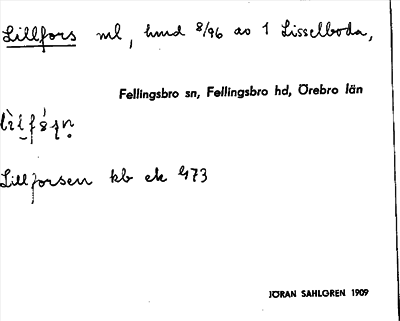 Lillfors ml, hmd 8/96 av 1 Lisselboda,
Fellingsbro sn, Fellingsbro hd, Örebro län
Lillforsen kb ek 473
JÖRAN SAHLGREN 1909